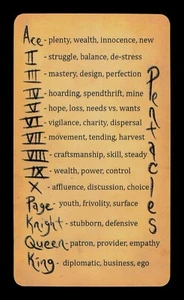 Ace - plenty, wealth, innocence, new
II - struggle, balance, de-stress
III - mastery, design, perfection
IV - hoarding, spendthrift, mine
V - hope, loss, needs vs. wants
VI - vigilance, charity, dispersal
VII - movement, tending, harvest
VIII - craftsmanship, skill, steady
IX - wealth, power, control
X - affluence, discussion, choice
Page - youth, frivolity, surface
Knight - stubborn, defensive
Queen - patron, provider, empathy
King - diplomatic, business, ego
Pentacles